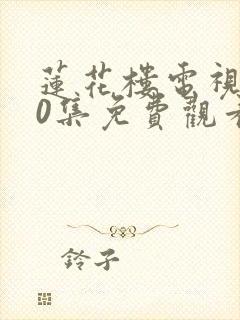 蓮花樓電視
0集免費觀看
鈴子